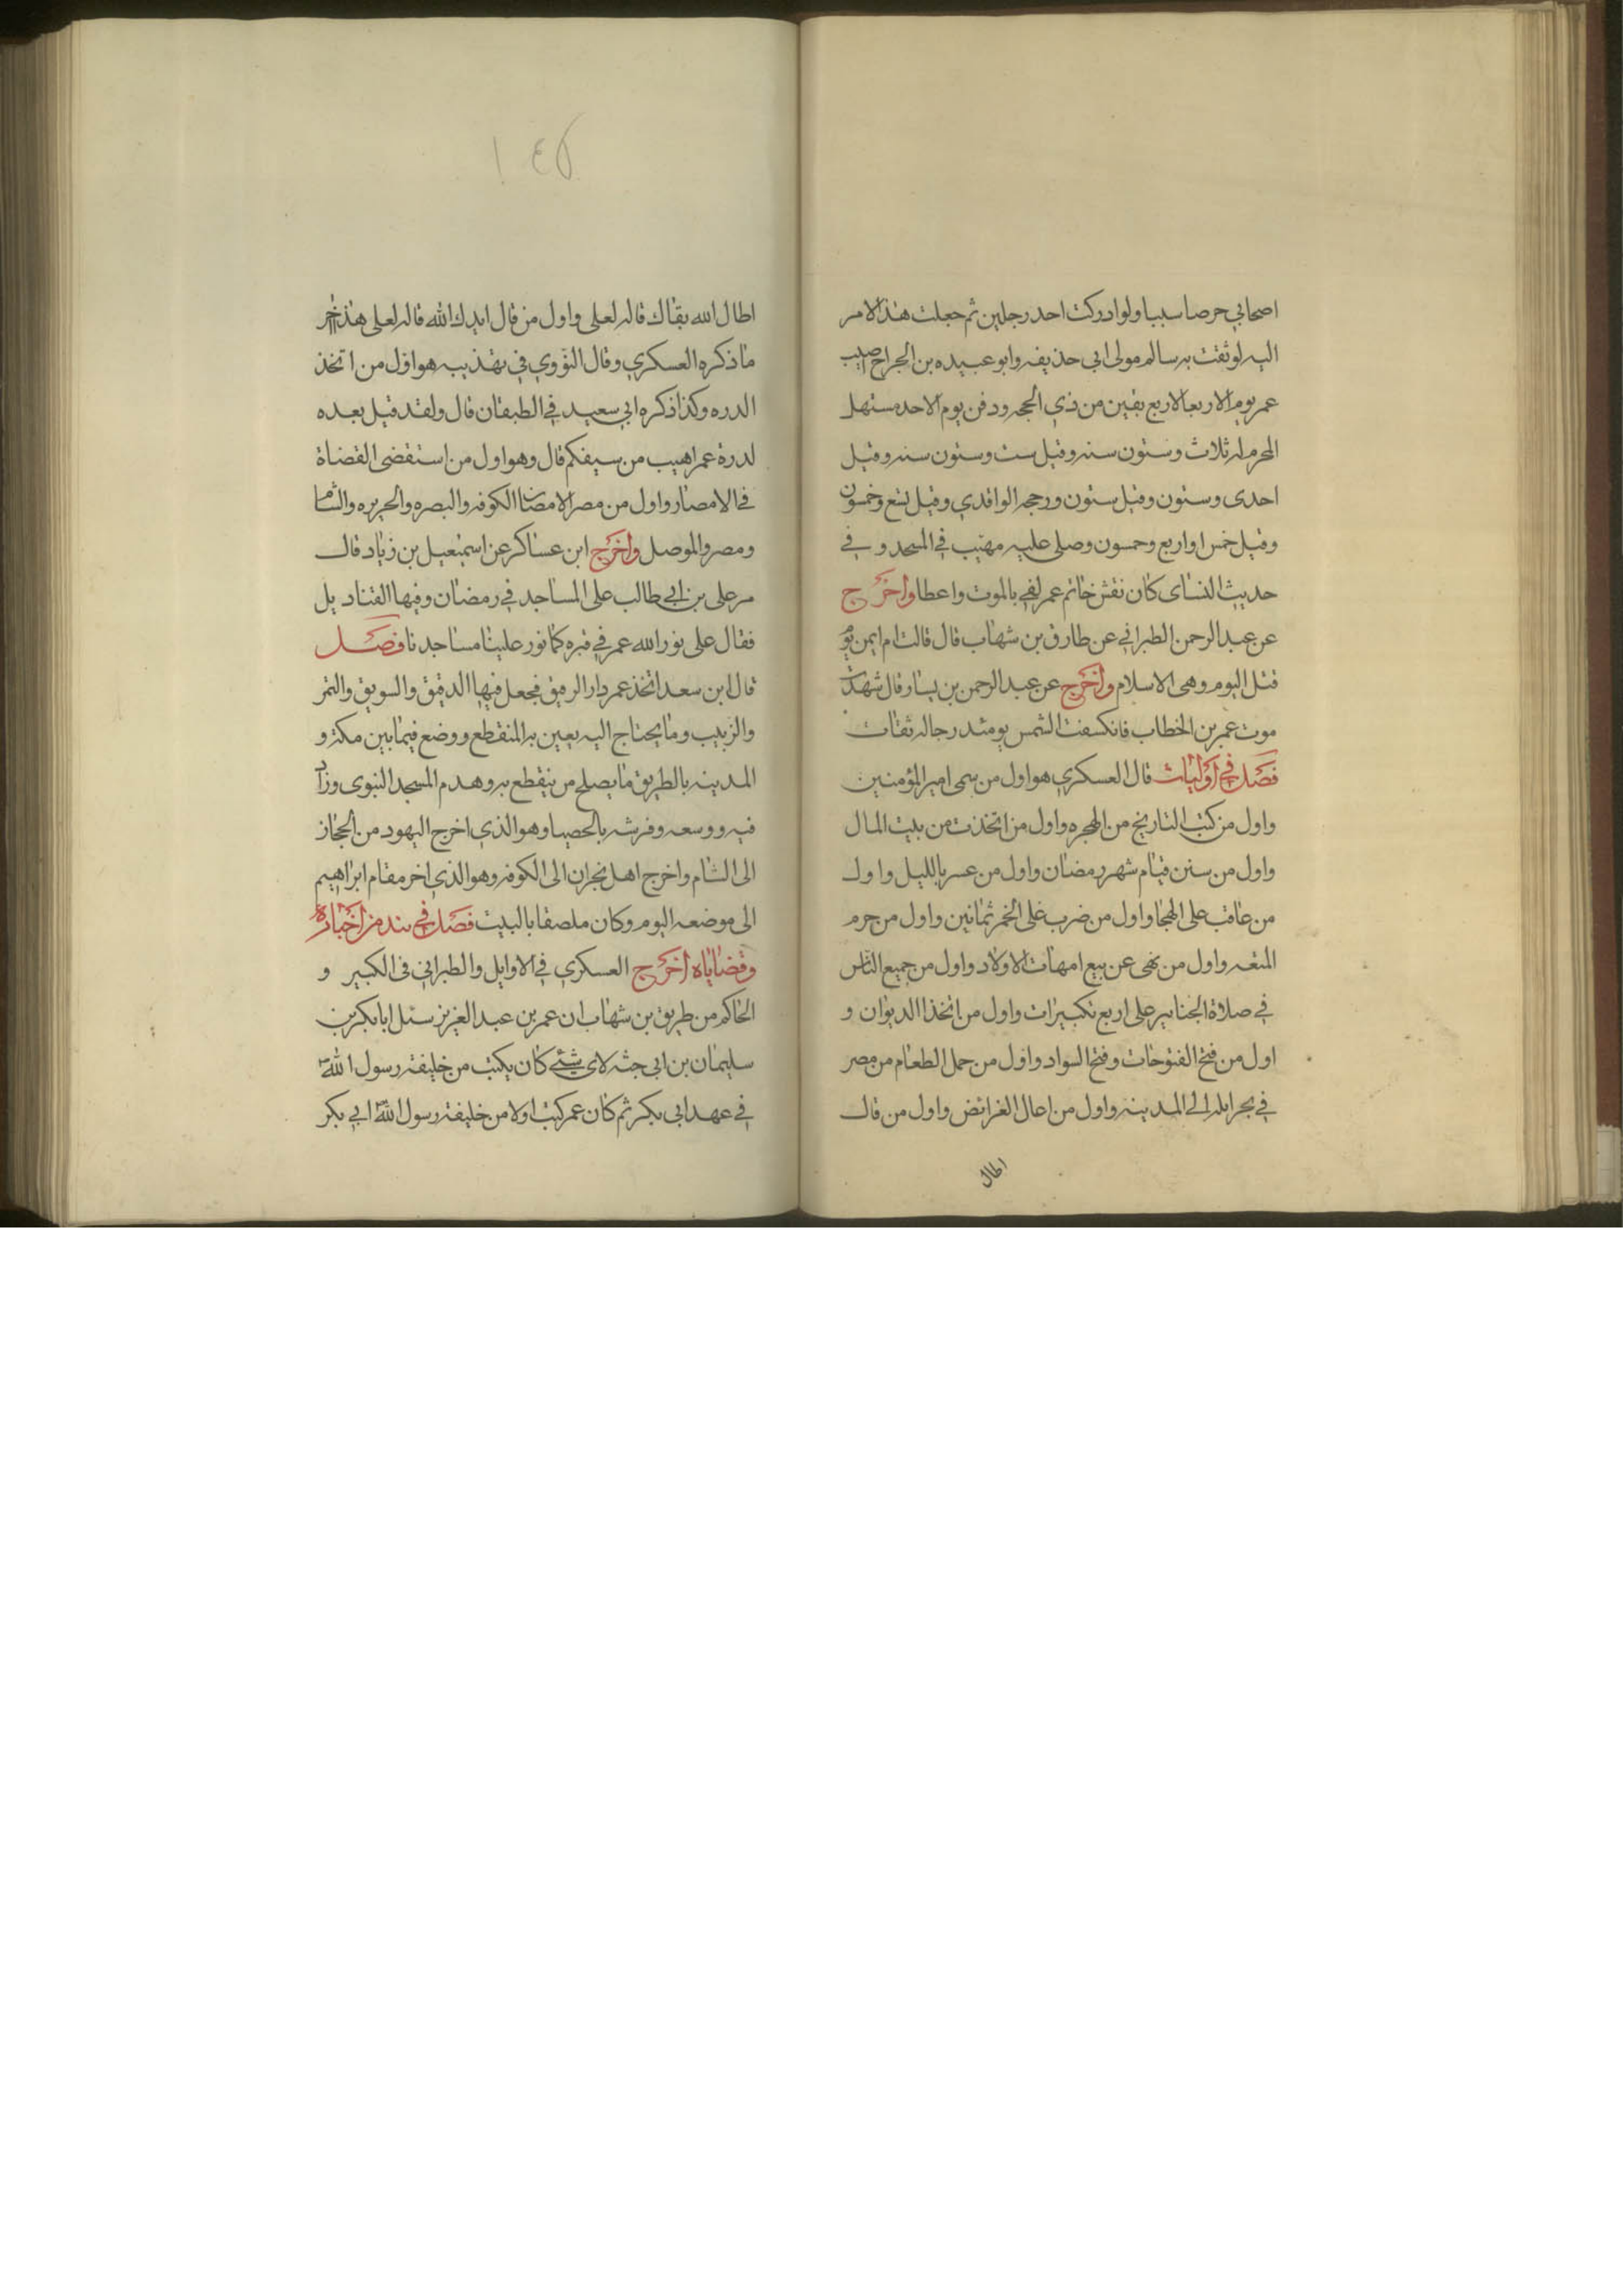 اصحابي حرصا سببا ولو ادركت احد رجلين ثم جعلت هذا الامر
اليه لوثقت به سالم مولى ابي حذيفه وابو عبيده بن الجراح اصيب
عمر يوم الاربعا لاربع بقين من ذي الحجه ودفن يوم الاحد مستهل
المحرم له ثلاث وستون سنه وقيل ست وستون سنه وقيل
احدى وستون وقيل ستون ورجحه الواقدي وقيل تسع وخمسون
وقيل خمس او اربع وخمسون وصلى عليه مهيب في المسجد و في
حديث النساى كان نقش خاتم عمر لفي بالموت واعطا واخرج
عن عبد الرحمن الطبراني عن طارق بن شهاب قال قالت ام ايمن يوم
قتل اليوم وهى الاسلام واخرج عن عبد الرحمن بن يسار قال شهدت
موت عمر بن الخطاب فانكسفت الشمس يومئد رجاله ثقات
فصل في اوليات قال العسكري هو اول من سمى امير المؤمنين
واول من كتب التاريخ من الهجره واول من اتخذت من بيت المال
واول من سنن قيام شهر رمضان واول من عسر بالليل واول
من عاقب على الهجا واول من ضرب على الخمر ثمانين واول من حرم
المتعه واول من نهى عن بيع امهات الاولاد واول من جميع الناس
في صلاة الجنايز على اربع تكبيرات واول من اتخذا الديوان و
اول من فتح الفتوحات وفتح السواد واول من حمل الطعام من مصر
في بحر ايله الى المدينه واول من اعال الفرائض واول من قال
اطال
اطال الله بقاك قاله لعلى واول من قال ايدك الله قاله لعلى هذا اخر
ما ذكره العسكري وقال النووي في تهذيبه هو اول من اتخذ
الدره وكذا ذكره ابي سعيد في الطبقات قال ولقد قيل بعده
لدرة عمر اهيب من سيفكم قال وهو اول من استقضى القضاة
في الامصار واول من مصر الامصار الكوفه والبصره والجزيره والشام
ومصر والموصل واخرج ابن عساكر عن اسمعيل بن زياد قال
مر على بن ابي طالب على المساجد في رمضان وفيها القناديل
فقال على نور الله عمر في قبره كما نور علينا مساجدنا فصل
قال ابن سعد اتخذ عمر دار الرقيق فجعل فيها الدقيق والسويق والتمر
والزبيب وما يحتاج اليه يعين به المنقطع ووضع فيما بين مكة و
المدينه بالطريق ما يصلح من ينقطع به وهدم المسجد النبوى وزاد
فيه ووسعه وفرشه بالحصبا وهو الذي اخرج اليهود من الحجاز
الى الشام واخرج اهل نجران الى الكوفه وهو الذي اخر مقام ابراهيم
الى موضعه اليوم وكان ملصقا بالبيت فصل في نبد من اخباره
وقضاياه اخرج العسكري في الاوايل والطبراني فى الكبير و
الحاكم من طريق بن شهاب ان عمر بن عبد العزيز سئل ابا بكر بن
سليمان بن ابى حثمه لاى شئ كان يكتب من خليفة رسول الله
في عهد ابى بكر ثم كان عمر كتب اولا من خليفة رسول الله ابي بكر